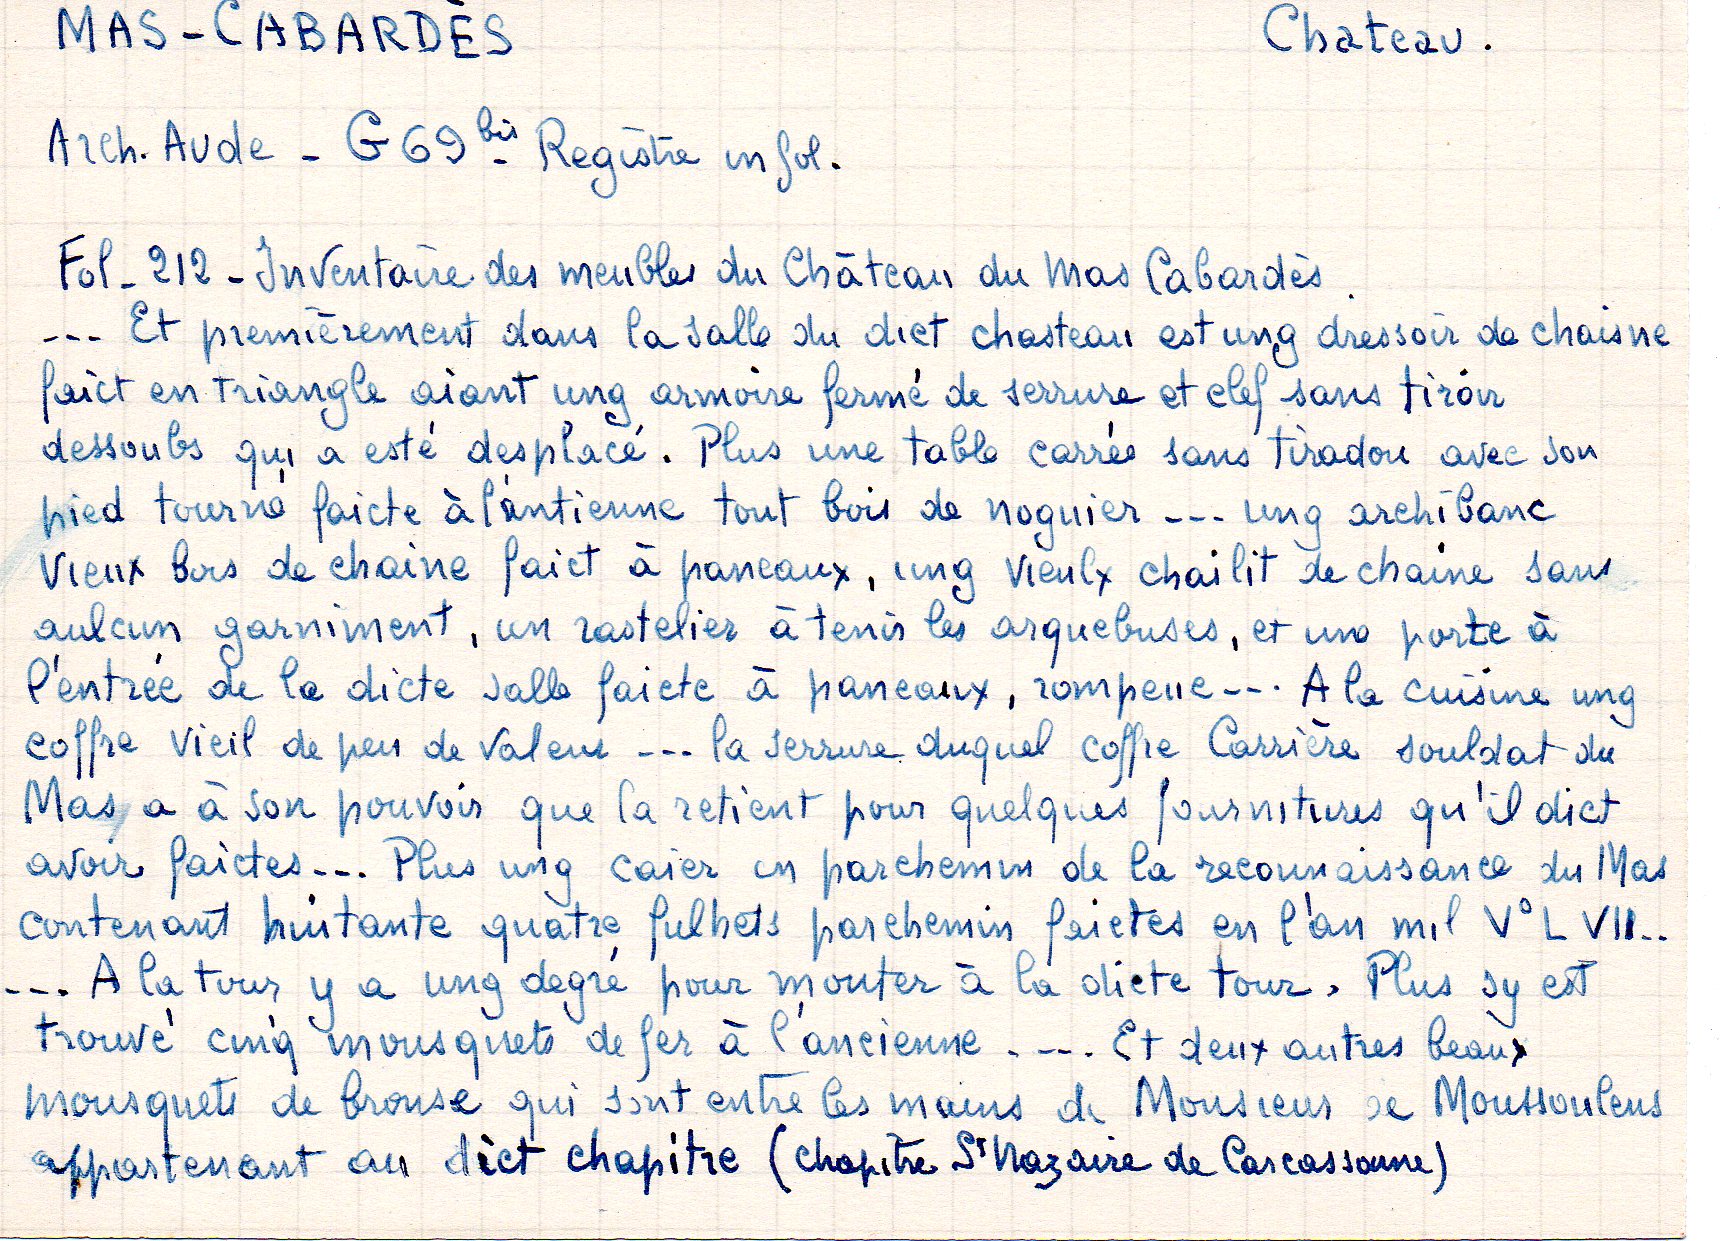 MAS-CABARDÈS Chateau.
Arch. Aude - G 69 bis - Registre in fol.
Fol - 212 - Inventaire des meubles du Château du Mas Cabardès.
--- Et premièrement dans la salle du dict chasteau est ung dressoir de chaisne
faict en triangle aiant ung armoire fermé de serrure et clef sans tiroir
dessoubs qui a esté desplacé. Plus une table carrée sans tiradou avec son
pied tourné faicte à l'antienne tout bois de noguier --- ung archibanc
vieux bois de chaine faict à paneaux, ung vieulx chailit de chaine sans
aulcun garniment, un rastelier à tenir les arquebuses, et une porte à
l'entrée de la dicte salle faicte à paneaux, rompeue --- A la cuisine ung
coffre vieil de peu de valeur --- la serrure duquel coffre Carrière souldat du
Mas a à son pouvoir que la retient pour quelques fournitures qu'il dict
avoir faictes --- Plus ung caier en parchemin de la reconnaissance du Mas
contenant huitante quatre fulhets parchemin faictes en l'an mil V° L VII..
--- A la tour y a ung degré pour monter à la dicte tour. Plus sy est
trouvé cinq mousquets de fer à l'ancienne .--- Et deux autres beaux
mousquets de bronse qui sont entre les mains de Monsieur de Moussoulens
appartenant au dict chapitre (chapitre St Nazaire de Carcassonne)